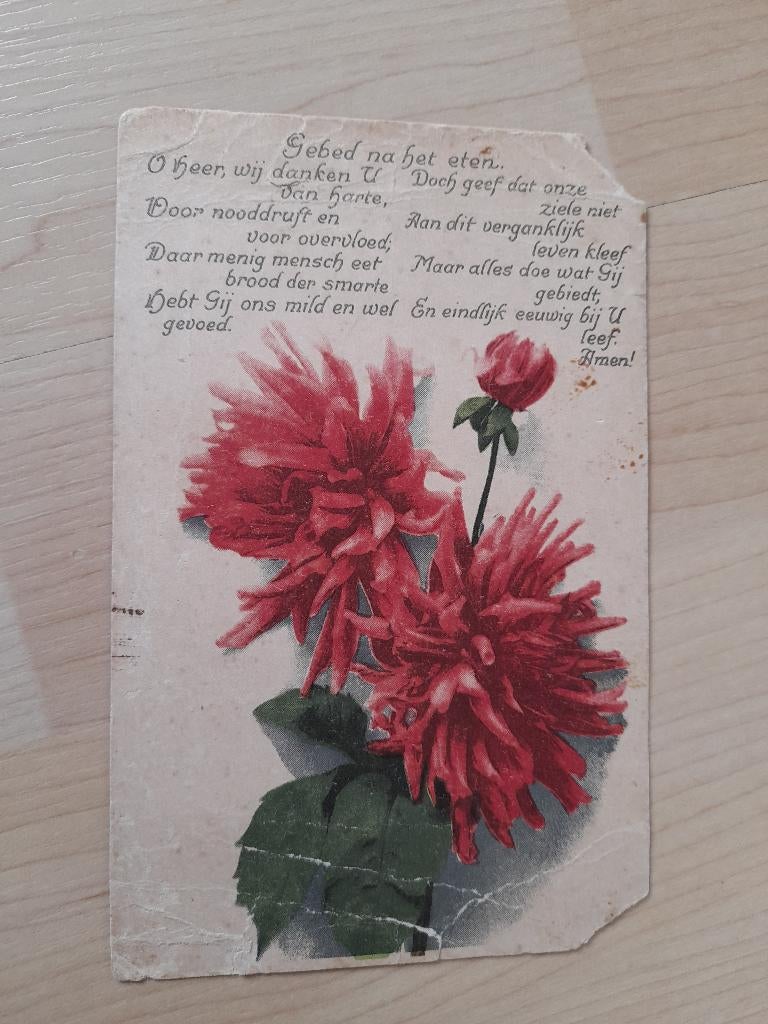 Gebed na het eten..
O Heer, wij danken U
van harte,
Door nooddruft en
voor overvloed;
Daar menig mensch eet
brood der smarte
Hebt Gij ons mild en wel
gevoed.
Doch geef dat onze
ziele niet
Aan dit verganklijk
leven kleef
Maar alles doe wat Gij
gebiedt,
En eindlijk eeuwig bij U
leef.
Amen!